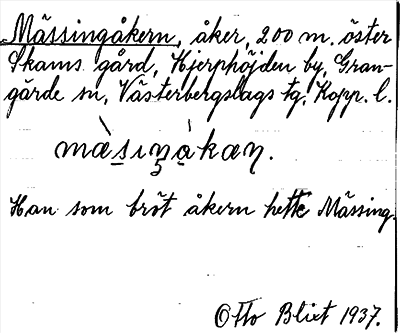 Mässingåkern, åker, 200 m. öster
Skams gård, Hjerphöjden by, Gran-
gärde sn, Västerbergslags tg, Kopp. l.
Han som bröt åkern hette Mässing.
Otto Blixt 1937.